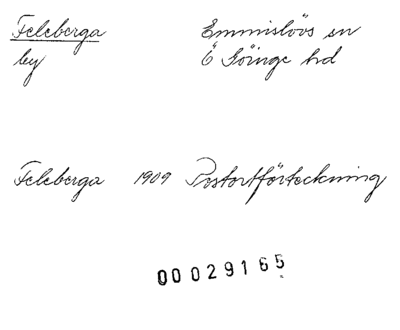 Feleberga Emmislövs sn
by Ö Göinge hd
Feleberga 1909 Postortförteckning
00029165